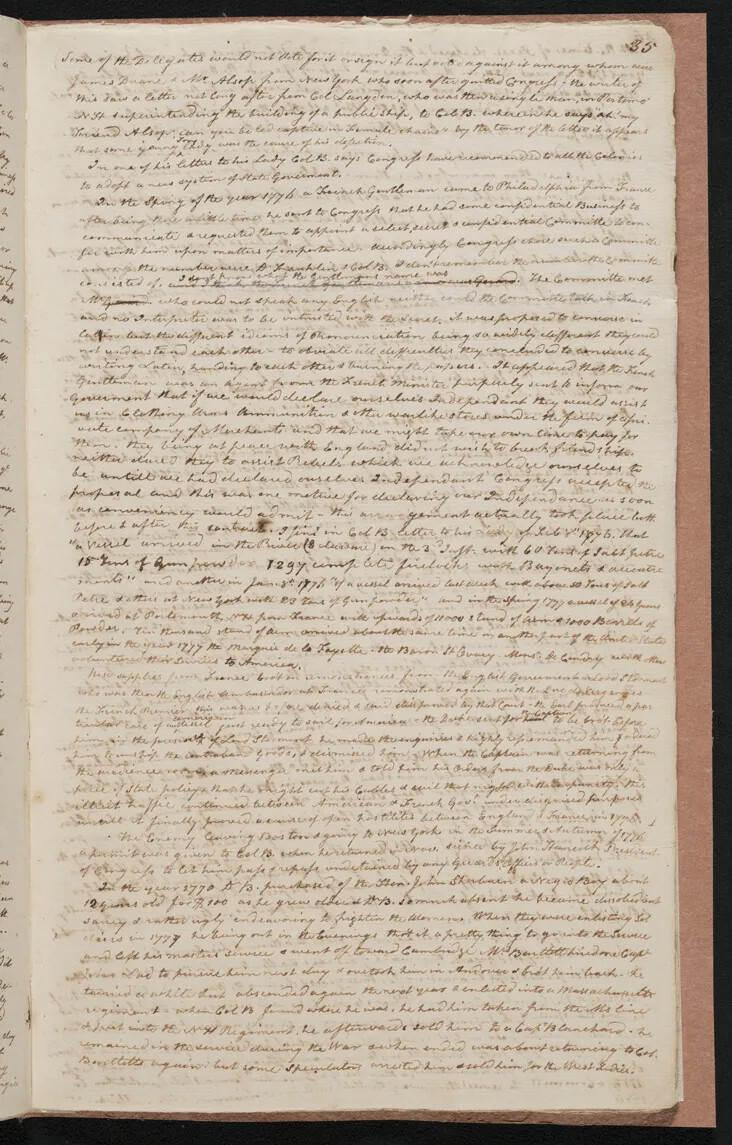 35
Some of the Delegates would not Vote for it or sign it but protest against it among whom were
James Duane & Mr. Alsop from New York who soon after quitted Congress; the writer of
this saw a letter not long after from Col Langdon, who was then a single man, in Portsmo
N H superintending the building of a public ship, to Col B. wherein he says ah! my
Friend Alsop can you be led captive in Female chains by the tenor of the letter it appears
that some young Lady was the cause of his defection.
In one of his letter to his Lady Col B. says Congress have recommended to all the Colonies
to adopt a new system of State Goverment.
In the Spring of the year 1776 a French Gentleman came to Philadelphia from France
after being there a little time he sent to Congress that he had some confidential Business to
communicate & requested them to appoint a select secret & confidential Committe to con-
fer with him upon matters of importance. accordingly Congress chose such a Committe
among the number were Dr Franklin & Col B. I dont remember the number the Committe
consisted of, the Gentlemans name was The Committe met
who could not speak any English neither could the Committe talk in French
and no Interpreter was to be intrusted with the Secret. it was proposed to converse in
Latin but the different idioms of Pronounciation being so widely different they could
not understand each other - to obviate all difficulties they concluded to converse by
writing Latin, handing to each other & burning the papers. It appeared that the French
Gentleman was an Agent from the French Minister purposely sent to inform our
Goverment that if we would declare ourselves Independent they would assist
us in Cloathing Arms Ammunition & other warlike stores under the firm of a pri-
vate company of Merchants and that we might take our own time to pay for
them. they being at peace with England did not wish to break friendship.
neither dared they to assist Rebels which we acknowledge ourselves to
be untill we had declared ourselves Independant Congress accepted the
proposal and this was one motive for declaring our Independance as soon
as conveniency would admit - this arrangement actually took place both
before & after this contract. I find in Col B. letter to his Lady of Feb 1776. that
"a Vessel arrived in the River (Delaware) on the 3d Inst. with 60 Tons of Salt Petre
15 Tons of Gun powder 1297 complete firelocks with Bayonets & accoutre
ments" and another in Jany 1776 "a vessel arrived last week with about 50 Tons of Salt
Petre & others at New York with 23 Tons of Gunpowder" and in the Spring 1777 a vessel of 24 guns
arrived at Portsmouth N H from France with upwards of 11000 stand of Arms & 1000 Barrells of
Powder. Ten thousand stand of Arms arrived about the same time in another part of the United States
early in the year 1777 the Marquis de la Fayette - the Baron St Ovary - Monsr. De Coudray with other
volunteered their Services to America.
New supplies from France took on remonstrances from the English Goverment Lord Stormont
who was then the English Ambassador at France remonstrated again with the Duc de Vergennes
the French Premier this was as before denied & said disapproved by that Court - the Earl produced a par-
ticular case of a vessel just ready to sail for America - the Duke sent for the Captain to be brot before
him, in the presence of Lord Stormont he made the enquiries & highly reprimanded him, ordered
him to unship the contraband Goods, & dismissed him. When the Captain was returning from
the audience room a Messenger met him & told him his Orders from the Duke was only a
piece of State policy & that he might cut his Cables & sail that night with the property. this
illicit traffic continued between American & French Govt. under disguised purposes
untill it finally proved a cause of open hostilities between England & France in 1778
The Enemy leaving Boston & going to New York in the Summer & Autumn of 1776
a permit was given to Col B. when he returned in Novr. signed by John Hancock President
of Congress to let him pass & repass undetained by any Guards, Officer or People.
In the year 1770 Dr B. purchased of the Hon. John Sherburn a Negro Boy about
12 years old for £100 as he grew older & Dr B. so much absent he became disobedient
saucy & rather ugly endeavoring to frighten the Women. When they were enlisting Sol
diers in 1777 he being out in the Evenings thot it a pretty thing to go into the Service
and left his masters Service & went off toward Cambridge. Mrs Bartlett hired one Capt
to pursue him next day & overtook him in Andover & brot him back. he
tarried a while but absconded again the next year & enlisted into a Massachusetts
regiment - when Col B found where he was, he had him taken from the Ms line
& put into the N H Regiment, he afterwards sold him to a Capt Blanchard - he
remained in the service during the War & when ended was about returning to Col.
Bartletts again but some Speculators arrested him & sold him for the West Indies.